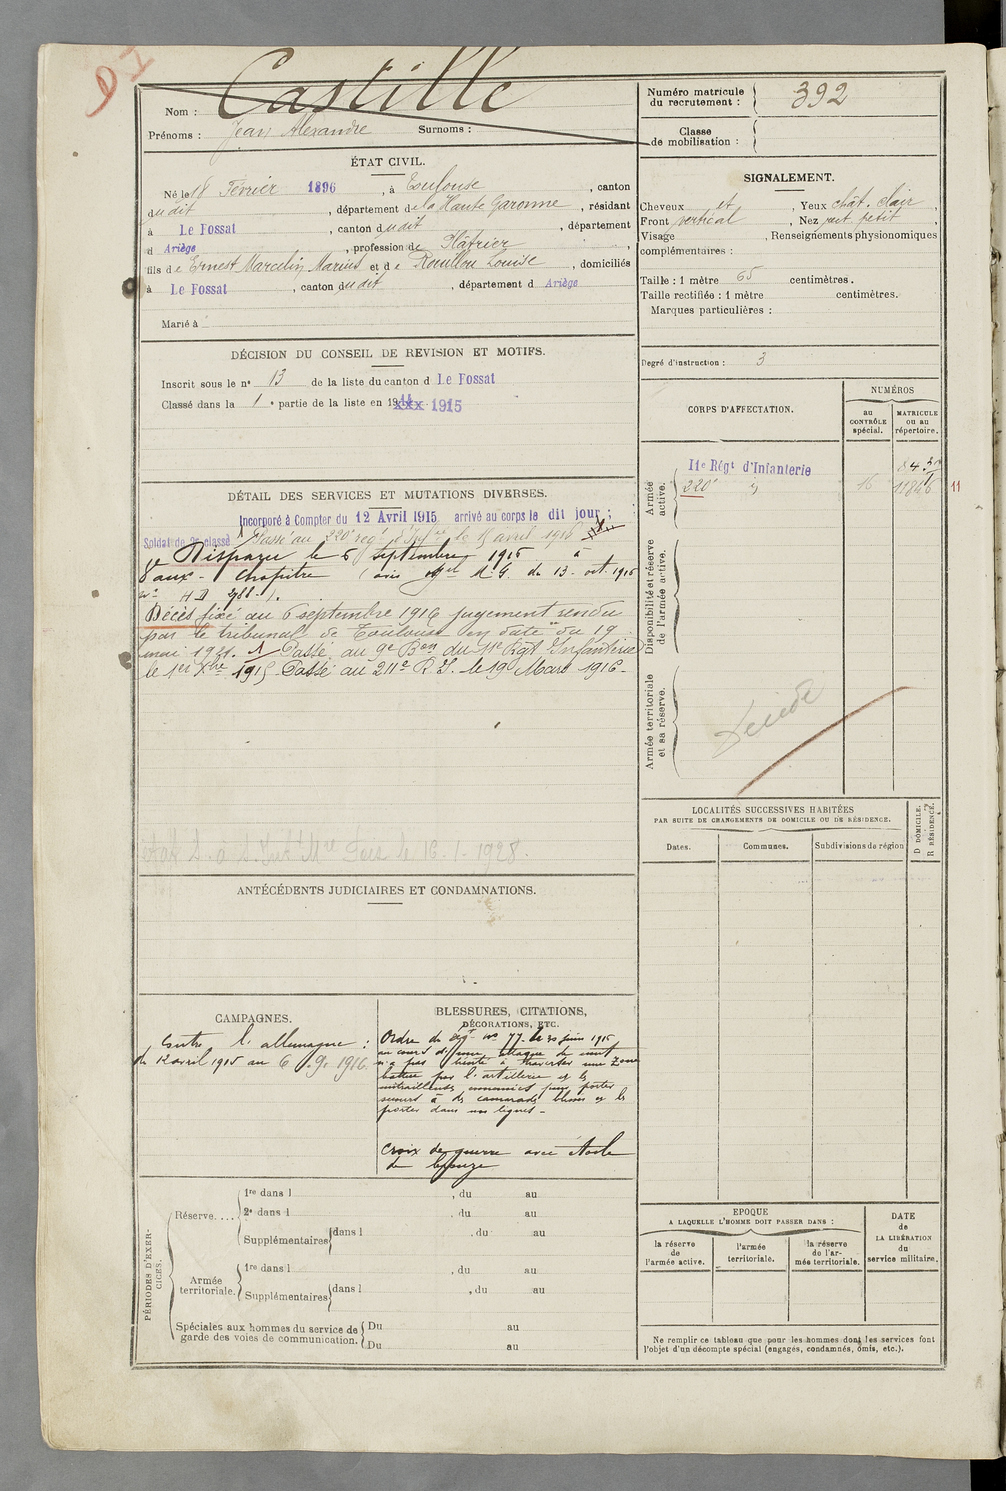 Nom : Castille
Prénoms : Jean Alexandre Surnoms :
Numéro matricule du recrutement : 392
Classe de mobilisation :
ÉTAT CIVIL.
Né le 18 Février 1896, à Toulouse, canton
dudit, département de la Haute Garonne, résidant
à Le Fossat, canton dudit, département
d Ariège, profession de Plâtrier,
fils de Ernest Marcelin Marius et de Roullou Louise, domiciliés
à Le Fossat, canton dudit, département d Ariège
Marié à
SIGNALEMENT.
Cheveux et, Yeux chât. clair,
Front vertical, Nez petit,
Visage , Renseignements physionomiques
complémentaires :
Taille : 1 mètre 65 centimètres.
Taille rectifiée : 1 mètre centimètres.
Marques particulières :
Degré d'instruction : 3
DÉCISION DU CONSEIL DE REVISION ET MOTIFS.
Inscrit sous le n° 13 de la liste du canton d Le Fossat
Classé dans la 1e partie de la liste en 1914 xxx 1915
DÉTAIL DES SERVICES ET MUTATIONS DIVERSES.
Incorporé à Compter du 12 Avril 1915 arrivé au corps le dit jour ;
Soldat de 2e classe Passé au 220e rég. d'Infie le avril 1916
Disparu le 6 septembre 1916 à
Vaux-Chapitre (avis Mel M.G. du 13 oct. 1916
n° HD 3788.).
Décès fixé au 6 septembre 1916 jugement rendu
par le tribunal de Toulouse en date du 19
mai 1921. Passé au 9e Bon du 11e Rgt Infanterie
le 1er Xbre 1915 Passé au 211e R.I. le 19 Mars 1916-
le 16-1-1928.
CORPS D'AFFECTATION.
NUMÉROS
au CONTRÔLE spécial.
MATRICULE ou au répertoire.
Armée active.
11e Régt d'Infanterie
220e 16 11846 11
Disponibilité et réserve de l'armée active.
Armée territoriale et sa réserve.
LOCALITÉS SUCCESSIVES HABITÉES
PAR SUITE DE CHANGEMENTS DE DOMICILE OU DE RÉSIDENCE.
Dates. Communes. Subdivisions de région
D DOMICILE. R RÉSIDENCE.
ANTÉCÉDENTS JUDICIAIRES ET CONDAMNATIONS.
CAMPAGNES.
Contre l'allemagne :
du 12 avril 1915 au 6.9.1916
BLESSURES, CITATIONS,
DÉCORATIONS, ETC.
Ordre du régt n° 77 le 30 juin 1916
au cours d'une attaque de nuit
n'a pas hésité à traverser une zone
battue par l'artillerie et les
mitrailleuses ennemies pour porter
secours à des camarades blessés et les
porter dans nos lignes-
Croix de guerre avec étoile
de bronze
PÉRIODES D'EXERCICES.
Réserve....
1re dans l , du au
2e dans l , du au
Supplémentaires dans l , du au
Armée territoriale.
1re dans l , du au
Supplémentaires dans l , du au
Spéciales aux hommes du service de Du au
garde des voies de communication. Du au
EPOQUE
A LAQUELLE L'HOMME DOIT PASSER DANS :
la réserve de l'armée active.
l'armée territoriale.
la réserve de l'armée territoriale.
DATE de LA LIBÉRATION du service militaire.
Ne remplir ce tableau que pour les hommes dont les services font
l'objet d'un décompte spécial (engagés, condamnés, omis, etc.).